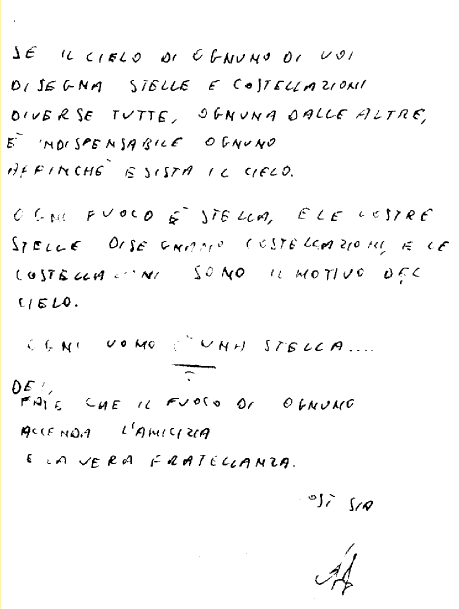 SE IL CIELO DI OGNUNO DI VOI
DISEGNA STELLE E COSTELLAZIONI
DIVERSE TUTTE, OGNUNA DALLE ALTRE,
E' INDISPENSABILE OGNUNO
AFFINCHE' ESISTA IL CIELO.
OGNI FUOCO E' STELLA, E LE VOSTRE
STELLE DISEGNANO COSTELLAZIONI, E LE
COSTELLAZIONI SONO IL MOTIVO DEL
CIELO.
OGNI UOMO E' UNA STELLA....
DEI,
FATE CHE IL FUOCO DI OGNUNO
ACCENDA L'AMICIZIA
E LA VERA FRATELLANZA.
COSÌ SIA